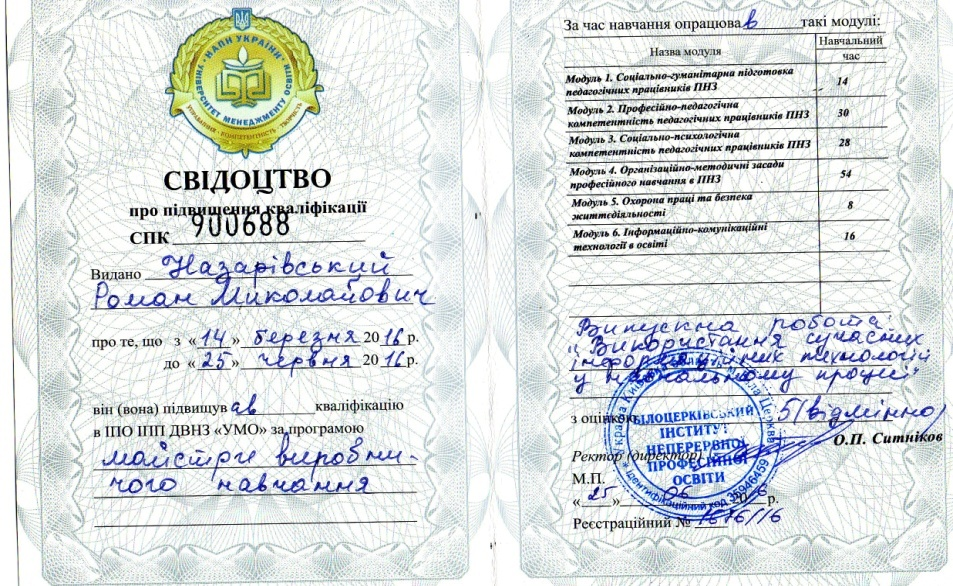 НАПН УКРАЇНИ
УНІВЕРСИТЕТ МЕНЕДЖМЕНТУ ОСВІТИ
УПРАВЛІННЯ · КОМПЕТЕНТНІСТЬ · ТВОРЧІСТЬ
СВІДОЦТВО
про підвищення кваліфікації
СПК 900688
Видано Назарівський
Роман Миколайович
про те, що з «14» березня 2016 р.
до «25» червня 2016 р.
він (вона) підвищував кваліфікацію
в ІПО ІПП ДВНЗ «УМО» за програмою
майстри виробни-
чого навчання
За час навчання опрацював такі модулі:
Назва модуля Навчальний час
Модуль 1. Соціально-гуманітарна підготовка
педагогічних працівників ПНЗ 14
Модуль 2. Професійно-педагогічна
компетентність педагогічних працівників ПНЗ 30
Модуль 3. Соціально-психологічна
компетентність педагогічних працівників ПНЗ 28
Модуль 4. Організаційно-методичні засади
професійного навчання в ПНЗ 54
Модуль 5. Охорона праці та безпека
життєдіяльності 8
Модуль 6. Інформаційно-комунікаційні
технології в освіті 16
Випускна робота:
"Використання сучасних
інформаційних технологій
у навчальному процесі"
з оцінкою 5 (відмінно)
Ректор (директор) О.П. Ситніков
М.П.
«25» 06 2016 р.
Реєстраційний № 1676/16
БІЛОЦЕРКІВСЬКИЙ
ІНСТИТУТ
НЕПЕРЕРВНОЇ
ПРОФЕСІЙНОЇ
ОСВІТИ